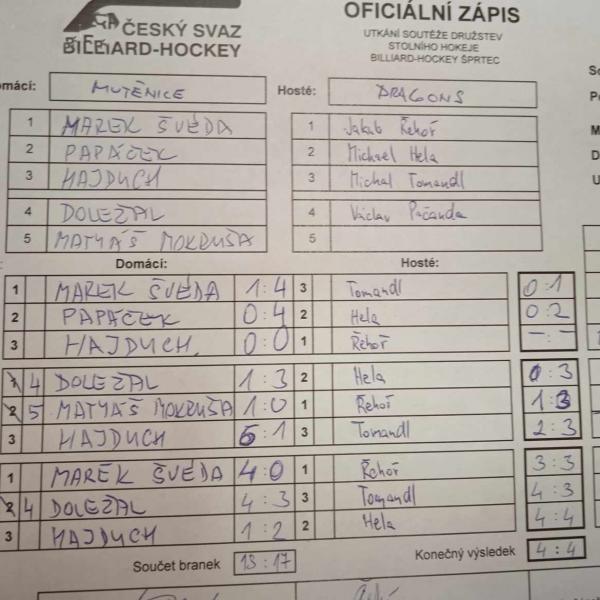 ČESKÝ SVAZ
BILLIARD-HOCKEY
OFICIÁLNÍ ZÁPIS
UTKÁNÍ SOUTĚŽE DRUŽSTEV
STOLNÍHO HOKEJE
BILLIARD-HOCKEY ŠPRTEC
mácí: MUTĚNICE Hosté: DRAGONS
1 MAREK ŠVÉDA 1 Jakub Řehoř
2 PAPÁČEK 2 Michael Hela
3 HAJDUCH 3 Michal Tomandl
4 DOLEŽAL 4 Václav Pačanda
5 MATYÁŠ MOKRUŠA 5
Domácí: Hosté:
1 MAREK ŠVÉDA 1:4 3 Tomandl 0:1
2 PAPÁČEK 0:4 2 Hela 0:2
3 HAJDUCH 0:0 1 Řehoř -:-
4 DOLEŽAL 1:3 2 Hela 0:3
2 5 MATYÁŠ MOKRUŠA 1:0 1 Řehoř 1:3
3 HAJDUCH 6:1 3 Tomandl 2:3
1 MAREK ŠVÉDA 4:0 1 Řehoř 3:3
2 4 DOLEŽAL 4:3 3 Tomandl 4:3
3 HAJDUCH 1:2 2 Hela 4:4
Součet branek 18:17 Konečný výsledek 4:4